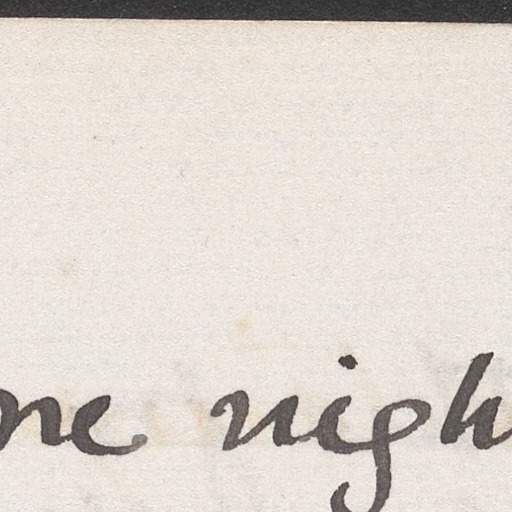 ne nigh